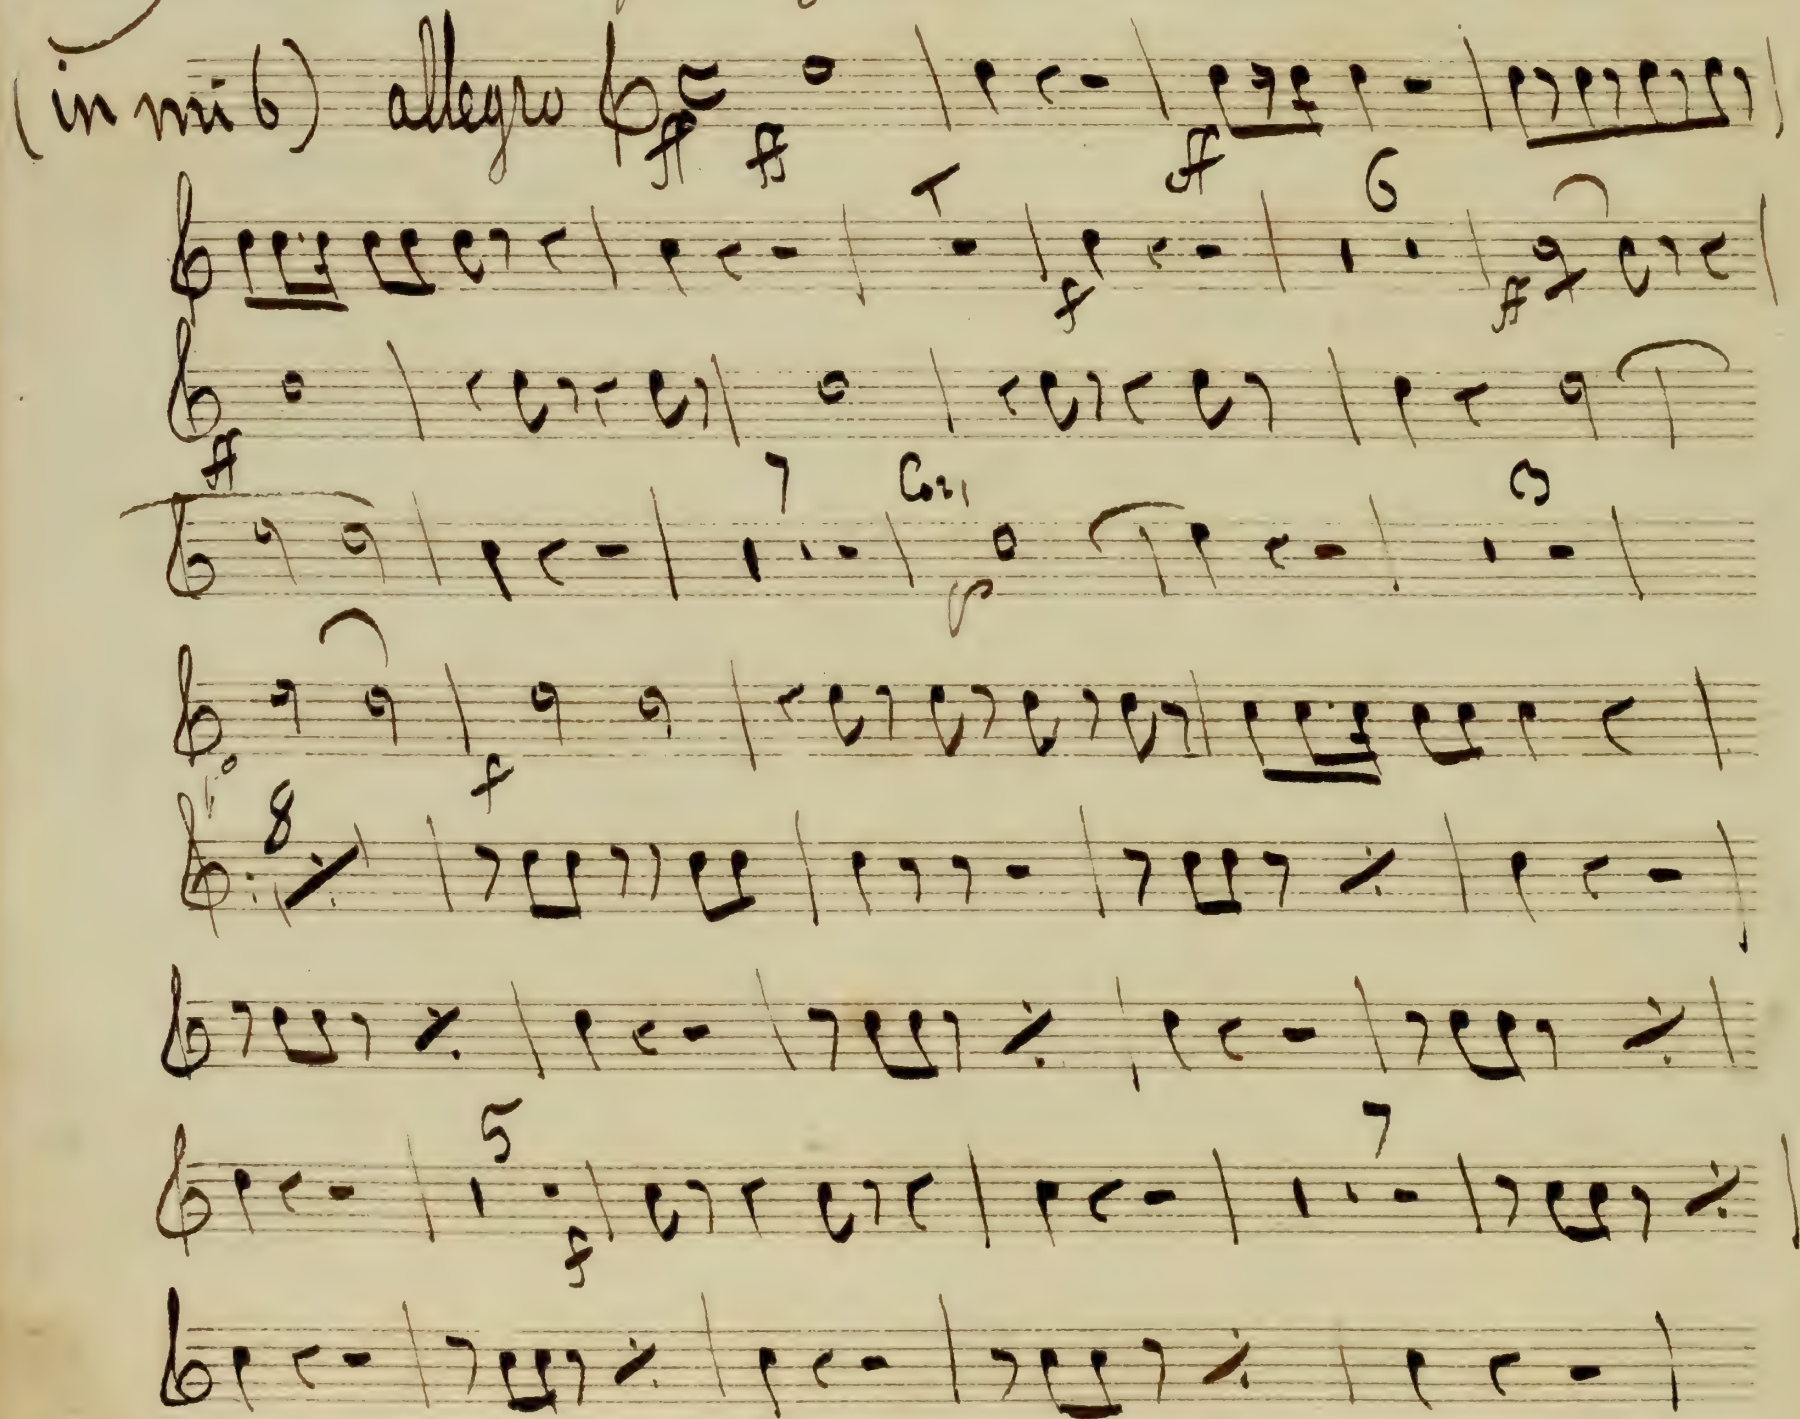 (in mi b) allegro
ff ff ff
6
f ff
ff
7 Cor 3
f
8
5 7
f